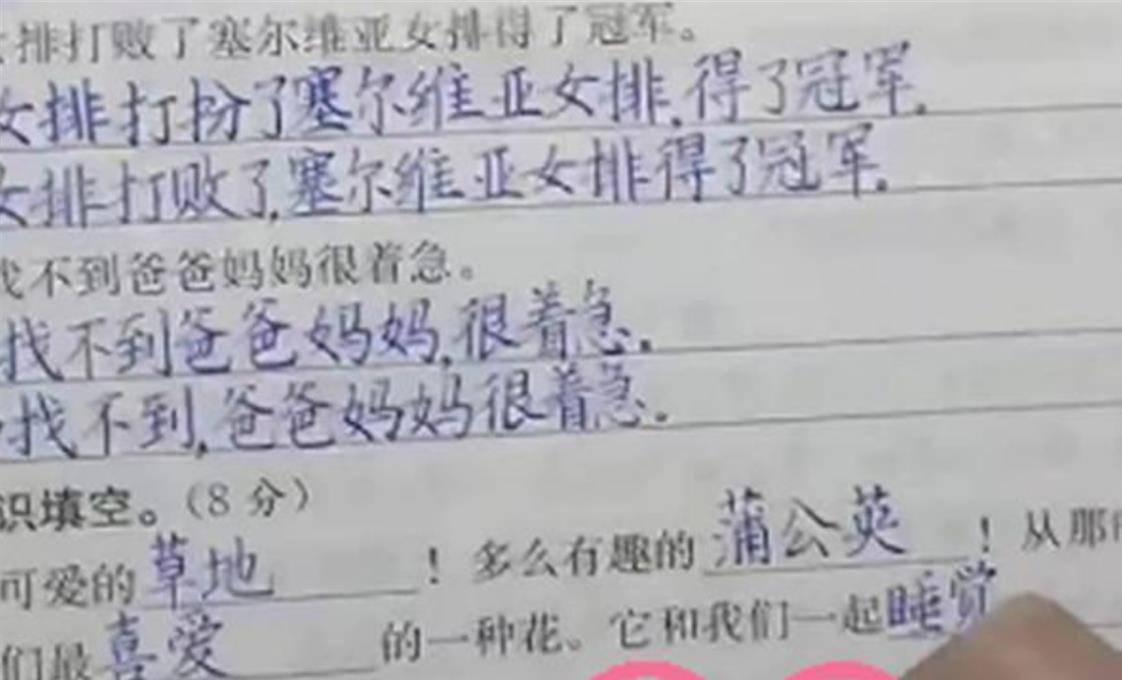 排打败了塞尔维亚女排得了冠军。
女排打扮了塞尔维亚女排,得了冠军.
女排打败了,塞尔维亚女排得了冠军.
找不到爸爸妈妈很着急。
找不到爸爸妈妈,很着急.
找不到,爸爸妈妈很着急.
识填空。(8分)
可爱的草地!多么有趣的蒲公英!从那
们最喜爱的一种花。它和我们一起睡觉